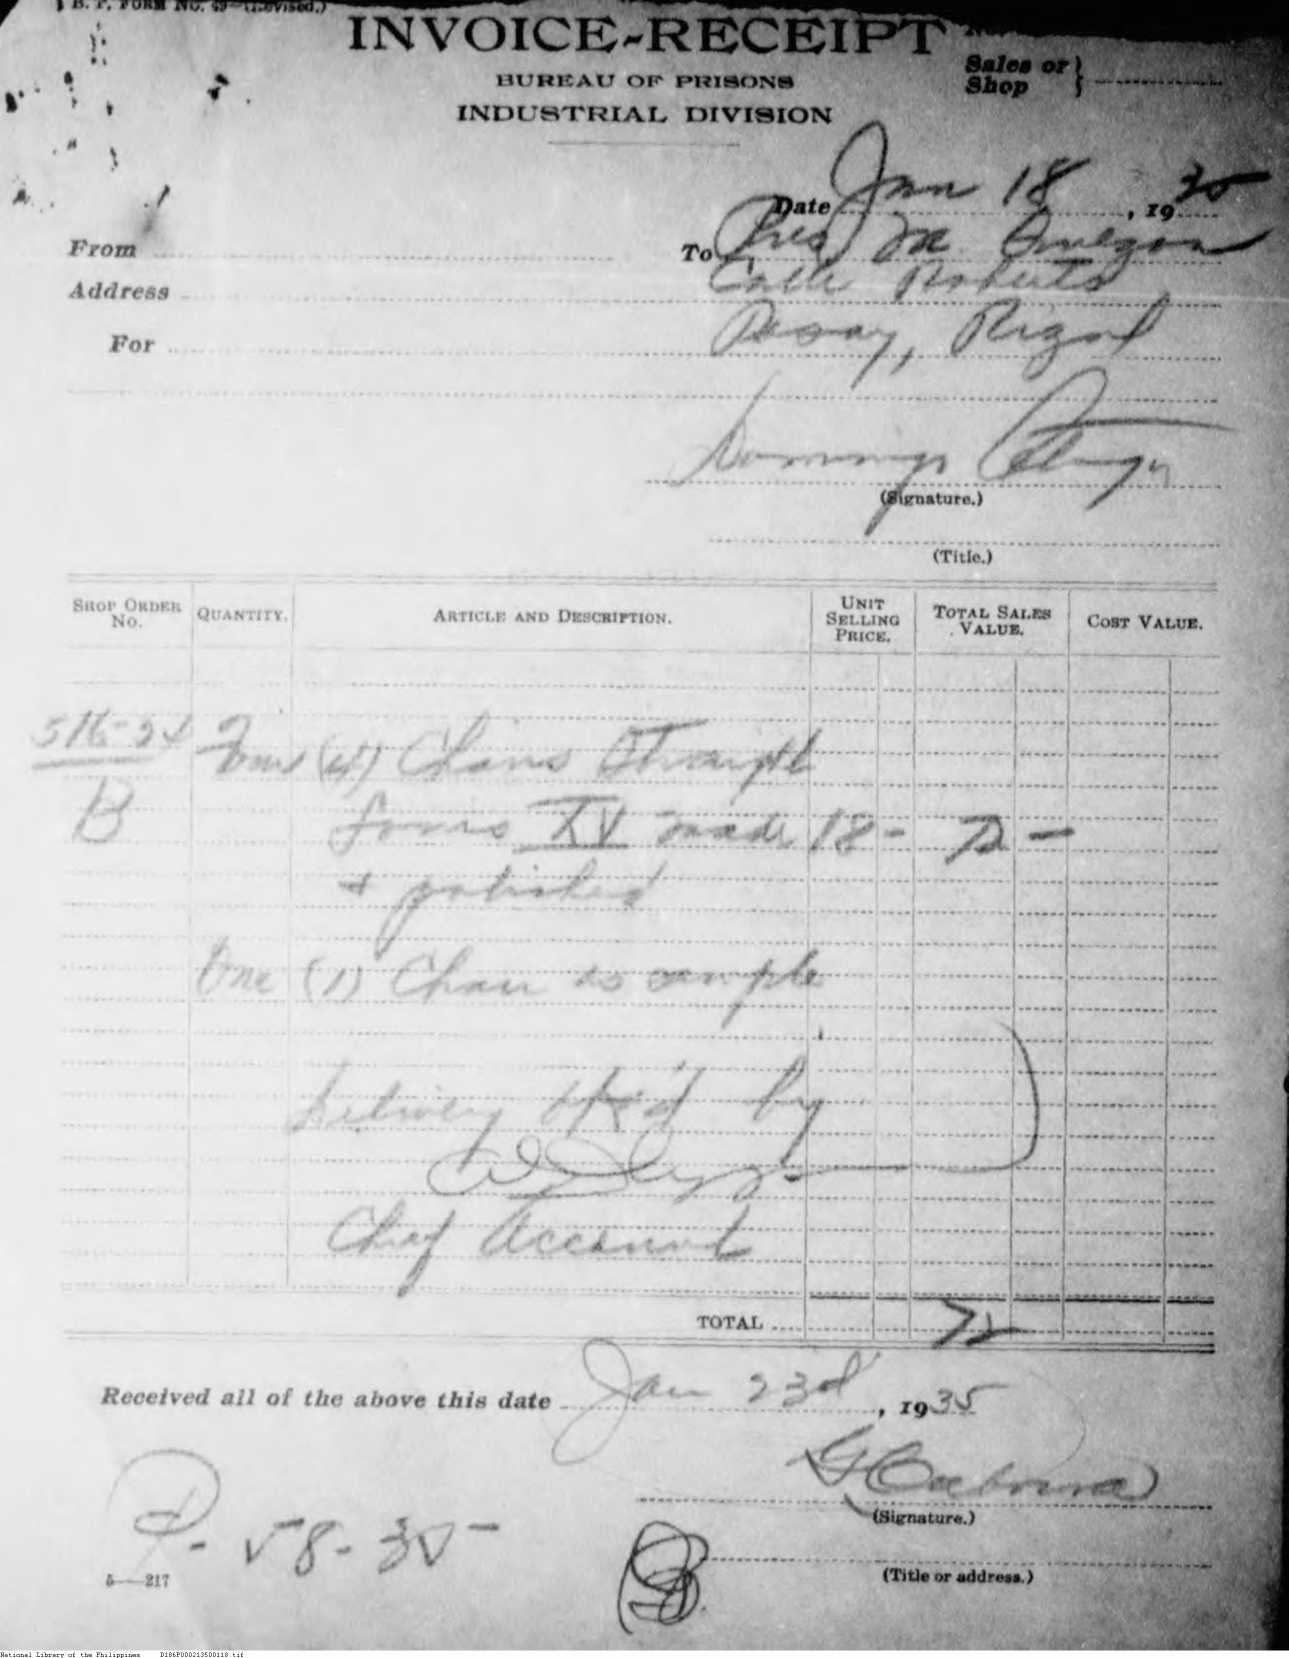 B. P. FORM NO. 49—(Revised.)
INVOICE-RECEIPT
BUREAU OF PRISONS
INDUSTRIAL DIVISION
Sales or
Shop
Date Jan 18, 1935
From To Pres M Quezon
Address Calle Roberts
For Pasay, Rizal
Domingo
(Signature.)
(Title.)
SHOP ORDER No. QUANTITY. ARTICLE AND DESCRIPTION. UNIT SELLING PRICE. TOTAL SALES VALUE. COST VALUE.
516-24 Four (4) Chairs Straight
B Louis XV made 18 - 72 -
+ polished
One (1) Chair as sample
Delivery by
Chief Account
TOTAL 72
Received all of the above this date Jan 23d, 1935
G Cabrera
(Signature.)
P-58-35-
(Title or address.)
5—217
National Library of the Philippines D186P000213500118.tif